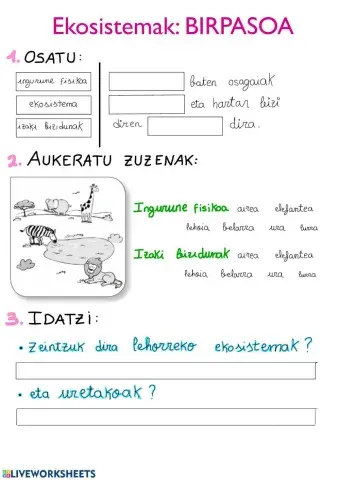 Ekosistemak: BIRPASOA
1. OSATU:
ingurune fisikoa
ekosistema
izaki bizidunak
baten osagaiak
eta hartan bizi
diren dira.
2. AUKERATU ZUZENAK:
Ingurune fisikoa airea elefantea
lehoia belarra ura lurra
Izaki Bizidunak airea elefantea
lehoia belarra ura lurra
3. IDATZI:
• Zeintzuk dira lehorreko ekosistemak?
• eta uretakoak?
LIVEWORKSHEETS